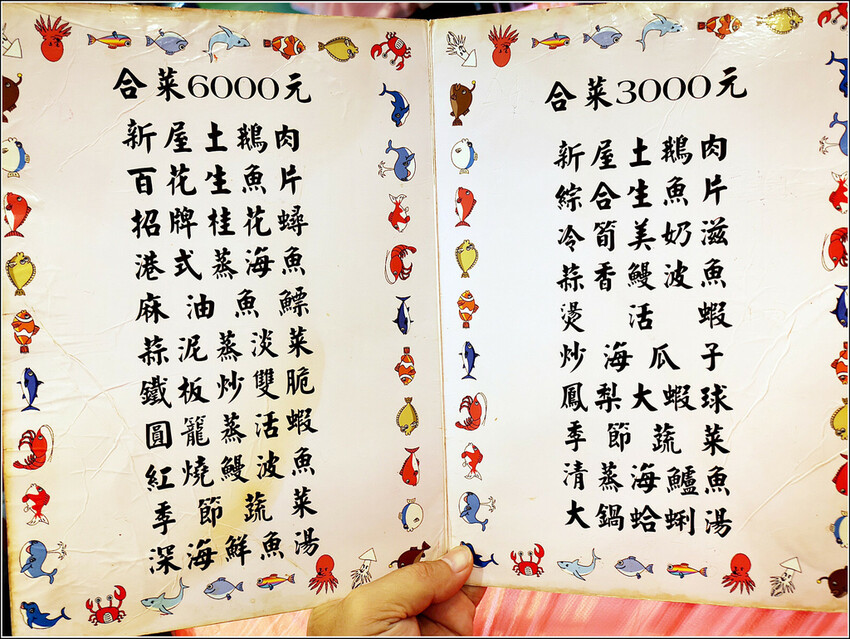 合菜6000元
新屋土鵝肉
百花生魚片
招牌桂花蟳
港式蒸海魚
麻油魚鰾
蒜泥蒸淡菜
鐵板炒雙脆
圓籠蒸活蝦
紅燒鰻波魚
季節蔬菜
深海鮮魚湯
合菜3000元
新屋土鵝肉
綜合生魚片
冷筍美奶滋
蒜香鰻波魚
燙活蝦
炒海瓜子
鳳梨大蝦球
季節蔬菜
清蒸海鱸魚
大鍋蛤蜊湯